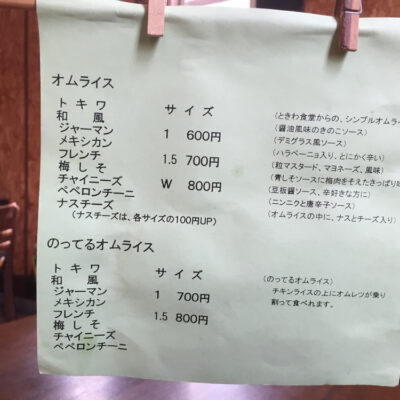 オムライス
トキワ サイズ (ときわ食堂からの、シンプルオムライ
和風 (醤油風味のきのこソース)
ジャーマン 1 600円 (デミグラス風ソース)
メキシカン (ハラペーニョ入り、とにかく辛い)
フレンチ 1.5 700円 (粒マスタード、マヨネーズ、風味)
梅しそ (青しそソースに梅肉をそえたさっぱり味
チャイニーズ W 800円 (豆板醤ソース、辛好きな方に)
ペペロンチーニ (ニンニクと唐辛子ソース)
ナスチーズ (オムライスの中に、ナスとチーズ入り)
(ナスチーズは、各サイズの100円UP)
のってるオムライス
トキワ サイズ
和風 (のってるオムライス)
ジャーマン 1 700円 チキンライスの上にオムレツが乗り
メキシカン 割って食べれます。
フレンチ 1.5 800円
梅しそ
チャイニーズ
ペペロンチーニ